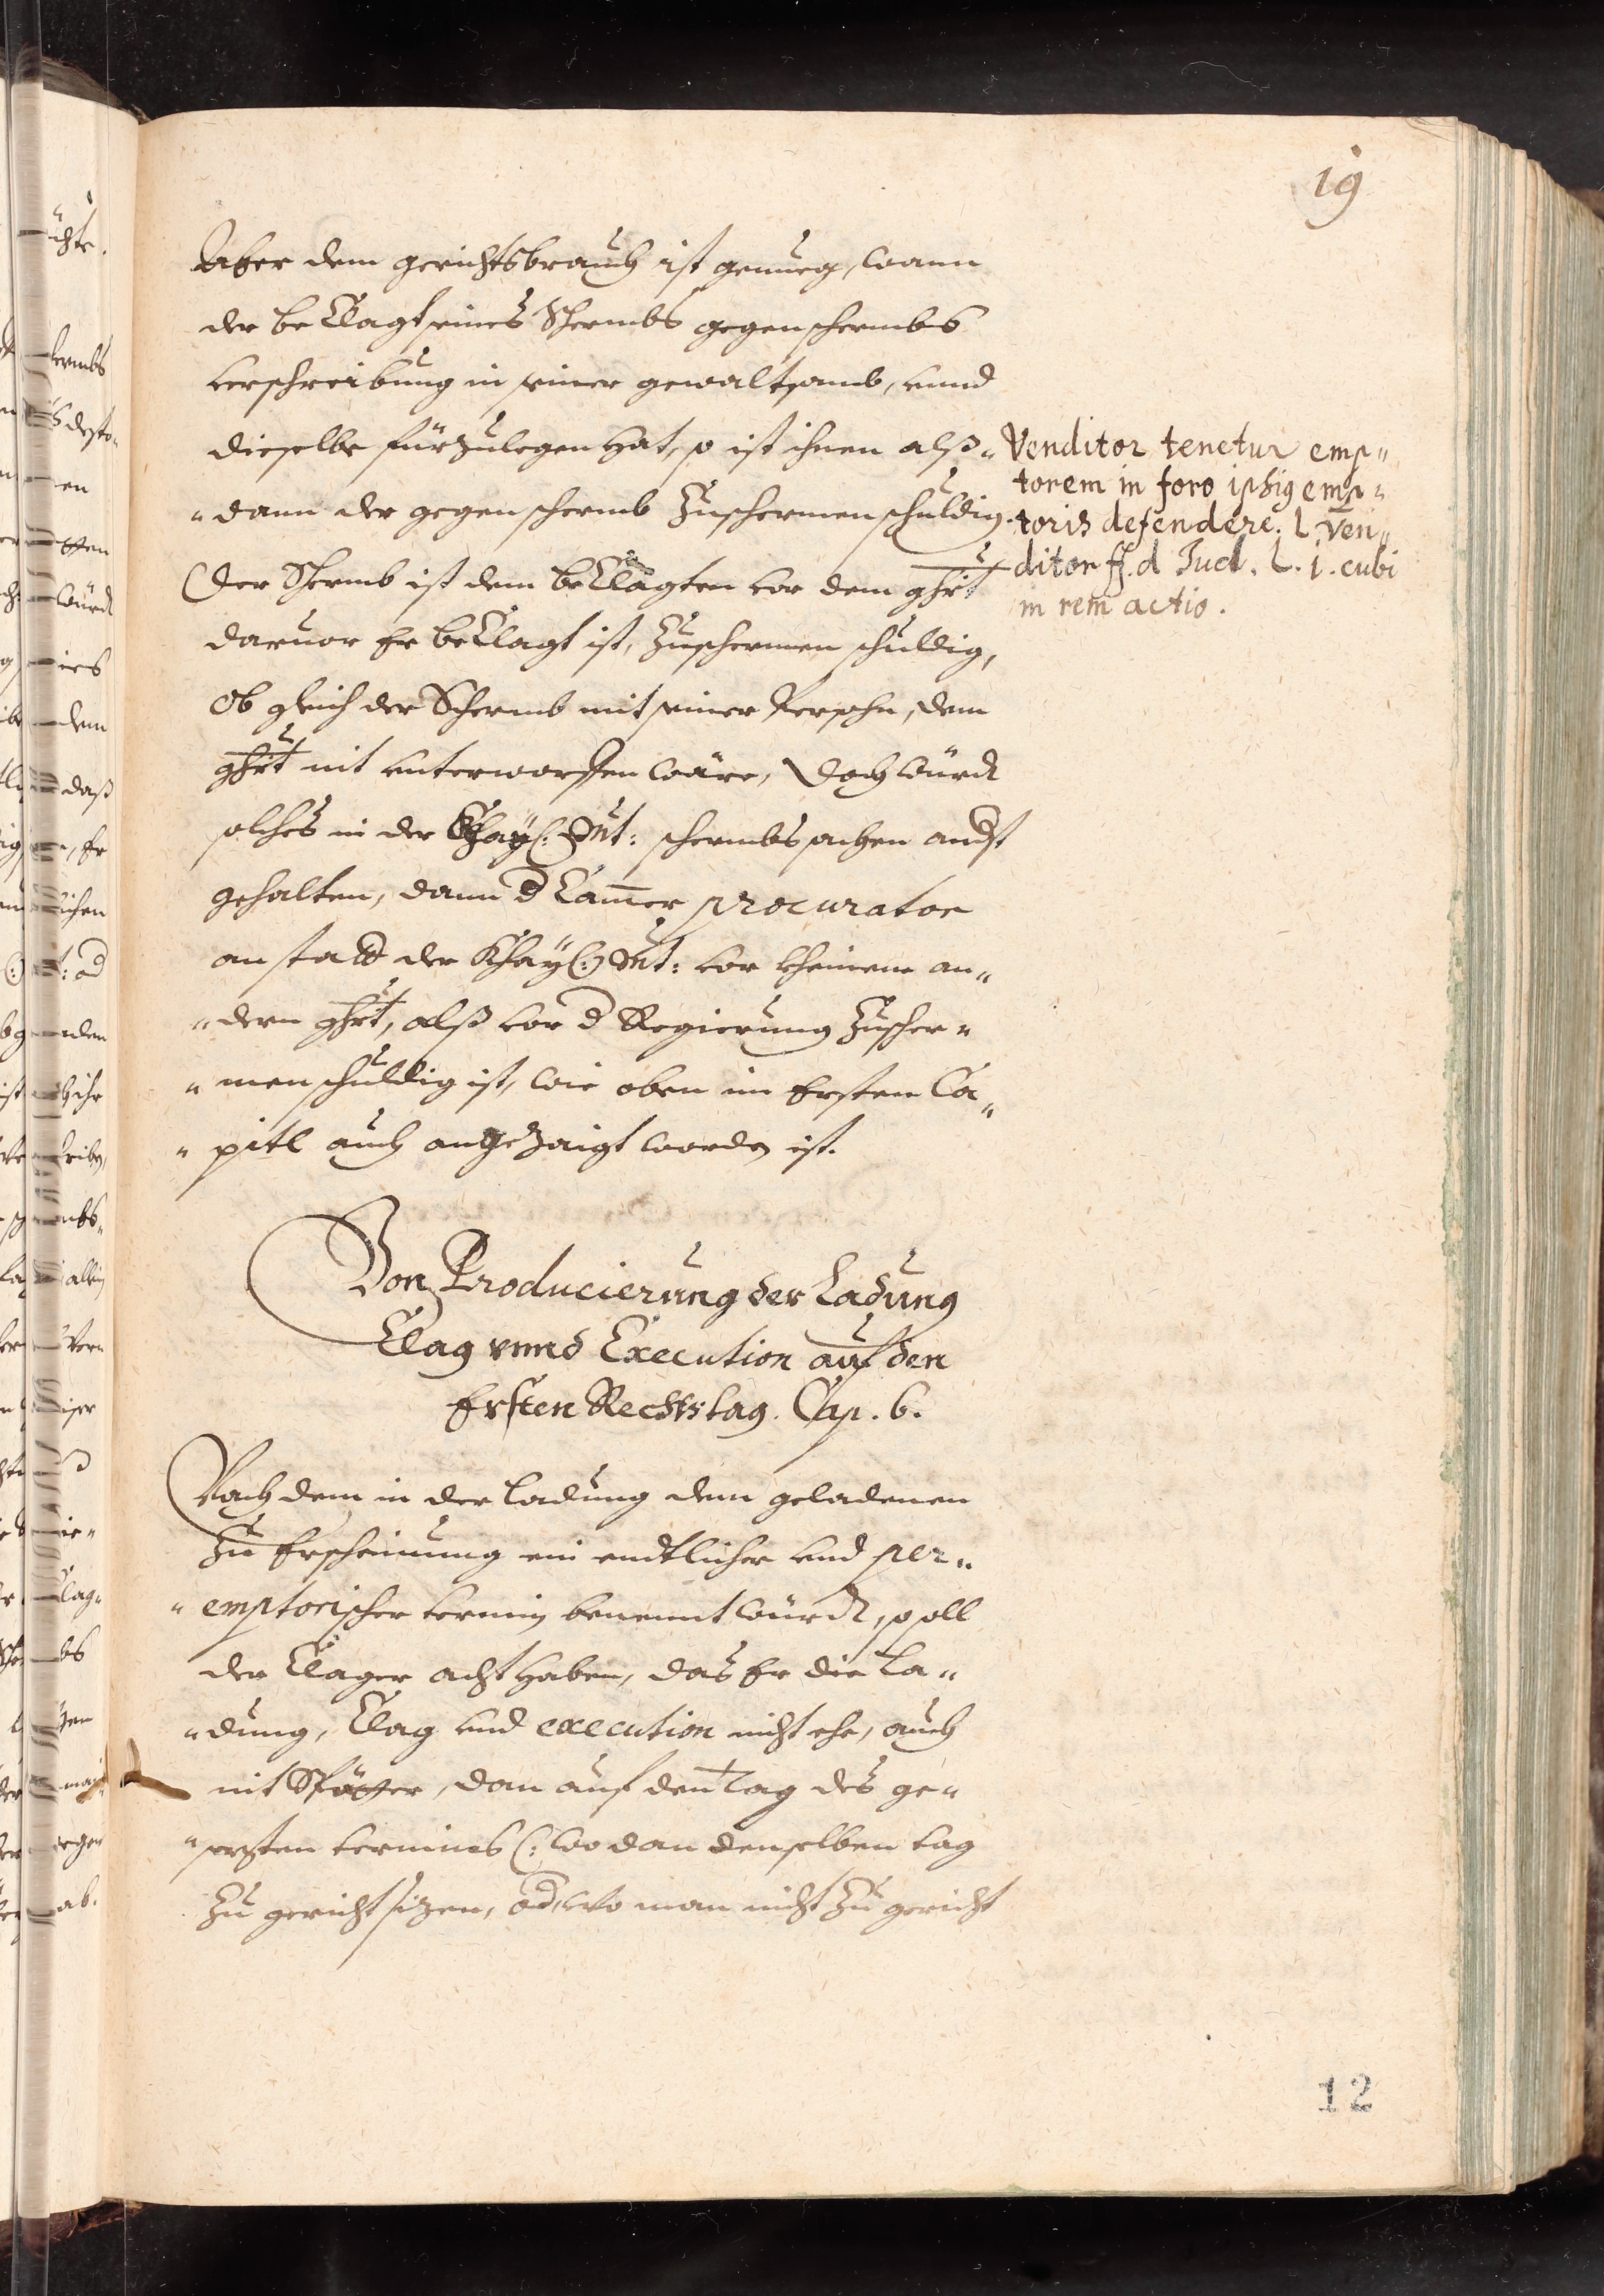 19
Aber dem gerichtsbrauch ist genueg, wann
der beclagt seines Schermbs gegenschermbs
verschreibung in seiner gewaltsamb, vnnd
dieselbe fürzulegen hat, so ist ihnen alß„
„dann der gegenschermb zuschermen schuldig.
Der Schermb ist dem beclagten vor dem ghrt
daruor Er beclagt ist, zuschermen schuldig,
ob gleich der Schermb mit seiner Persohn, dem
ghrt nit vnterworffen wäre, Doch würdt
solches in der Khay: Mt: schermbs sachen
gehalten, dann d Cammer procurator
anstatt der Khay(:) Mt: vor kheinem an„
„dern ghrt, alß vor d Regierung zuscher„
„men schuldig ist, wie oben im Ersten Ca„
„pitl auch angezaigt worden ist.
Venditor tenetur emp„
torem in foro ipsig emp„
toris defendere. l. Ven„
ditor ff. d Jud. L. 1. C ubi
in rem actio.
Von Producierung der Ladung
Clag vnnd Execution auf den
Ersten Rechtstag. Cap. 6.
Nach dem in der Ladung dem geladenen
zu Erscheinung ein endtlicher vnd per„
„emptorischer termin benennt würdt, soll
der Clager acht haben, das Er die La„
„dung, Clag vnd execution nicht ehe, auch
nit Spötter, dan auf den Tag des ge„
„sezten termines (: wo dan denselben tag
zu gericht sizen, od, wo man nicht zu gericht
12